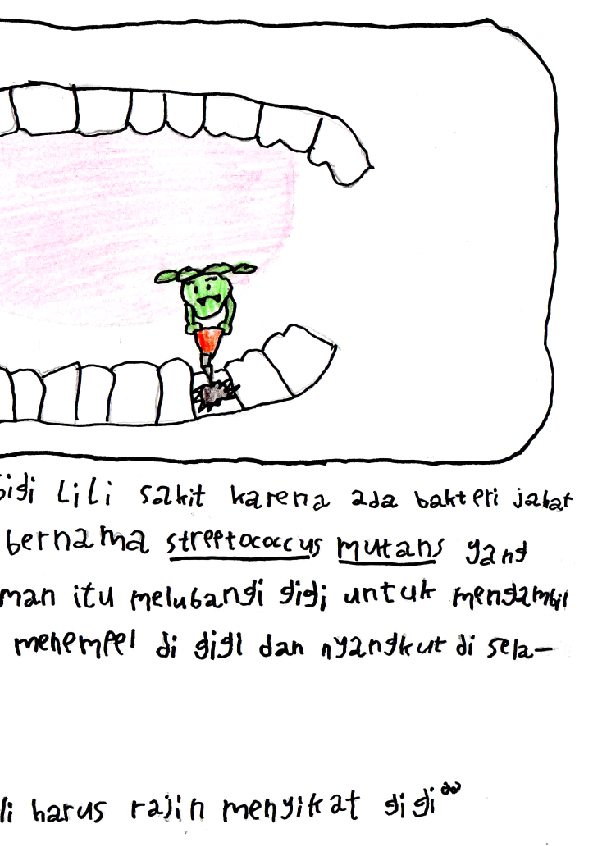 Gigi Lili sakit karena ada bakteri jahat
bernama streptococcus mutans yang
man itu melubangi gigi untuk mengambil
menempel di gigi dan nyangkut di sela-
li harus rajin menyikat gigi